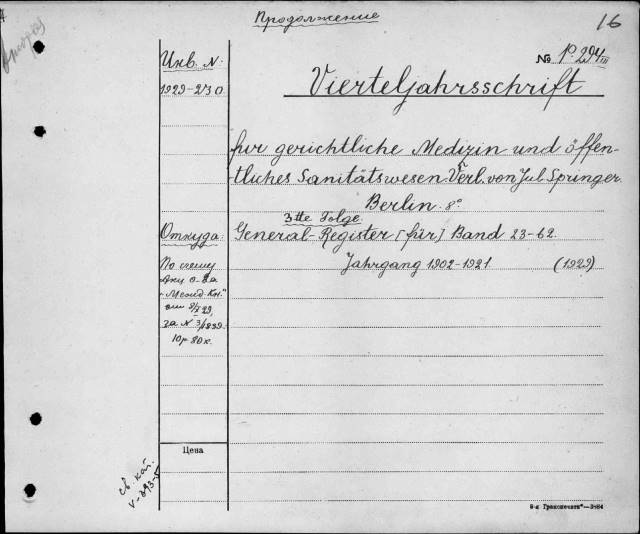 Продолжение
16
Инв. N:
№ P 294 III
1929-230
Vierteljahrsschrift
für gerichtliche Medizin und öffen-
tliches Sanitätswesen. Verl. von Jul. Springer.
Berlin. 8°
3tte Folge.
Откуда:
General-Register [für] Band 23-62.
Jahrgang 1902-1921 (1929)
По счету
Акц. о-ва
"Межд. Кн."
от
29,
за N 3/1839
10 р 80 к.
Цена
св. кат.
V-393-5
8-я Гранопечать"—3484